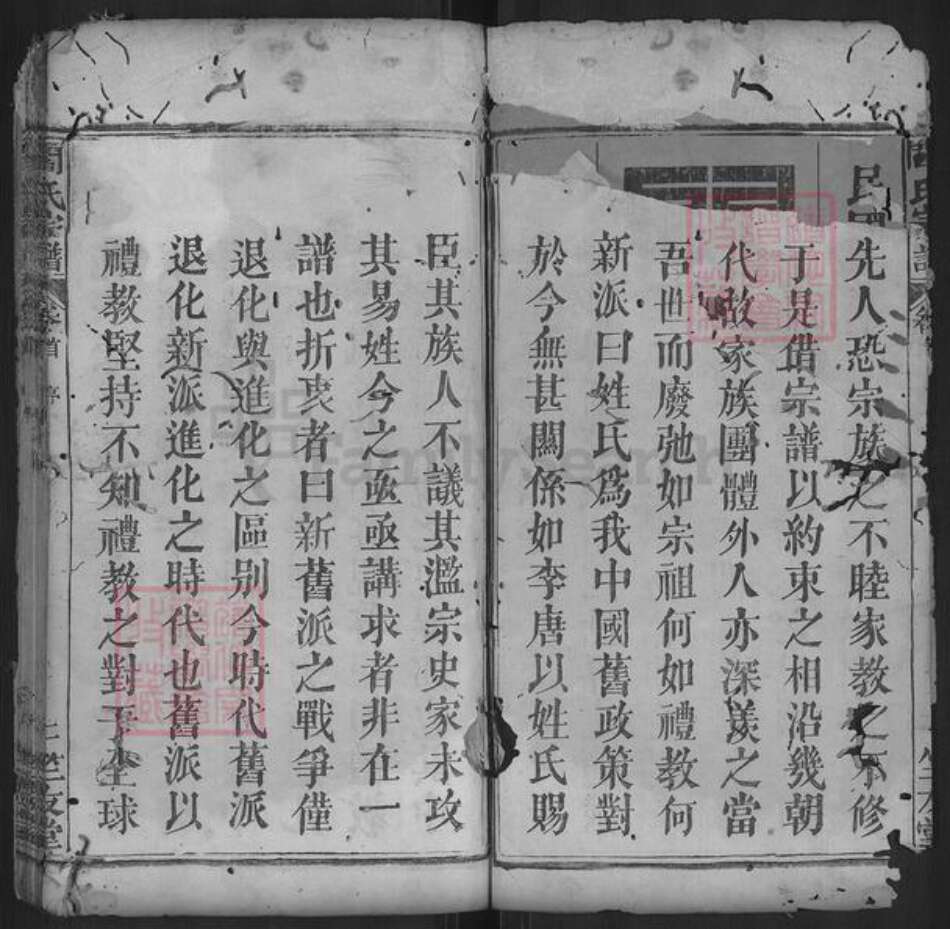 民國
先人恐宗族之不睦家教之不修
于是借宗譜以約束之相沿幾朝
代故家族團體外人亦深羨之當
吾世而廢弛如宗祖何如禮教何
新派曰姓氏爲我中國舊政策對
於今無甚關係如李唐以姓氏賜
臣其族人不議其濫宗史家未攻
其易姓今之亟亟講求者非在一
譜也折衷者曰新舊派之戰爭僅
退化與進化之區別今時代舊派
退化新派進化之時代也舊派以
禮教堅持不知禮教之對于全球
氏宗譜
卷首
序
七
FamilySearch